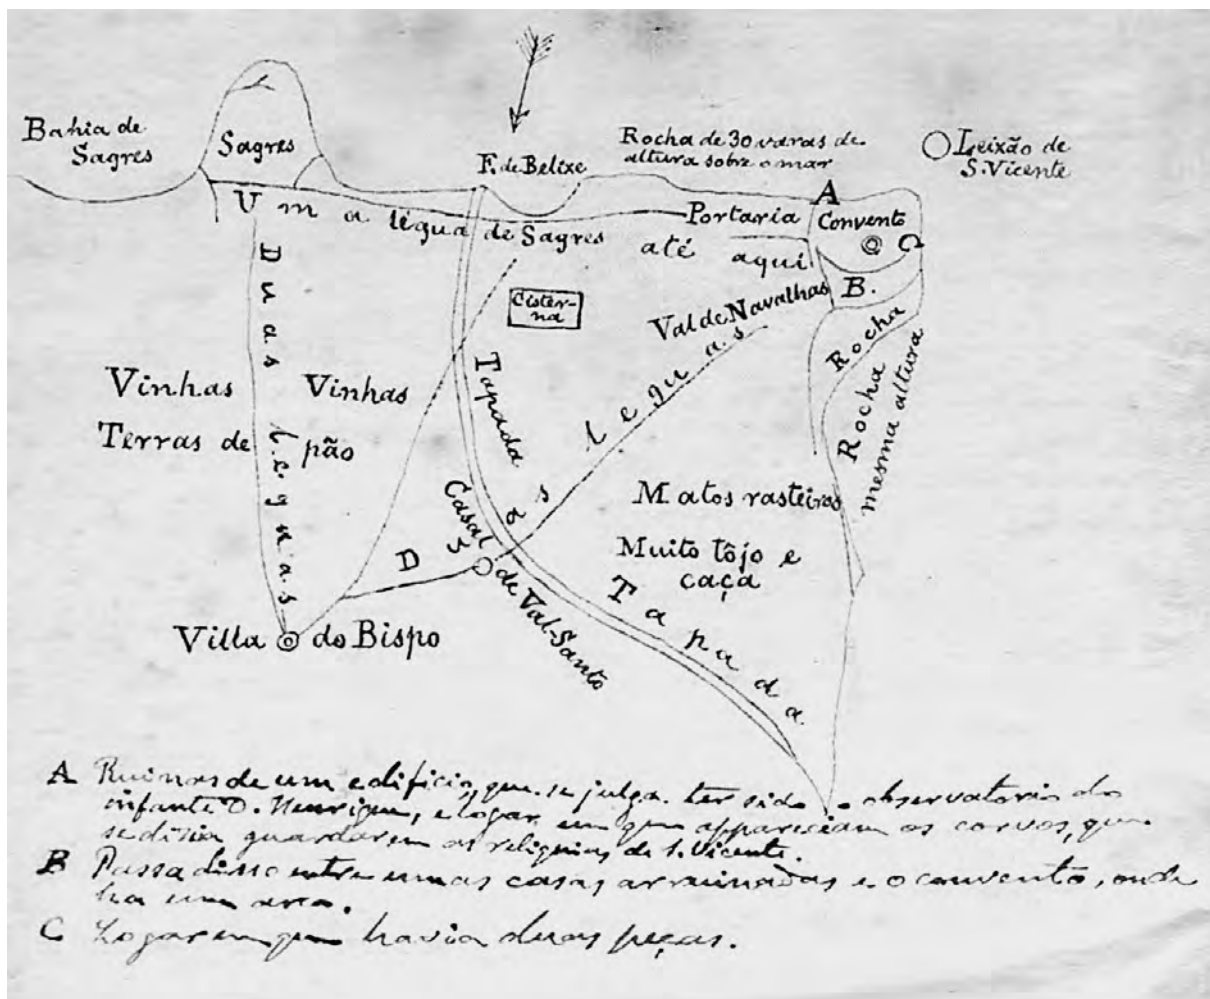 Bahia de
Sagres
Sagres
F. de Belixe
Rocha de 30 varas de
altura sobre o mar
Leixão de
S. Vicente
Uma légua de Sagres
até aqui
Portaria
A
Convento
C
B.
Duas léguas
Cister-
na
Val de Navalhas
Rocha
Rocha
mesma altura
Vinhas
Vinhas
Terras de pão
Tapada
Duas leguas
Casal
de Val-Santo
Matos rasteiros
Muito tôjo e
caça
Tapada
Villa do Bispo
A Ruinas de um edificio, que se julga ter sido o observatorio do
infante D. Henrique, e logar em que appareciam os corvos, que
se dizia guardarem as reliquias de S. Vicente.
B Passadisso entre umas casas arruinadas e o convento, onde
ha um arco.
C Logar em que havia duas peças.